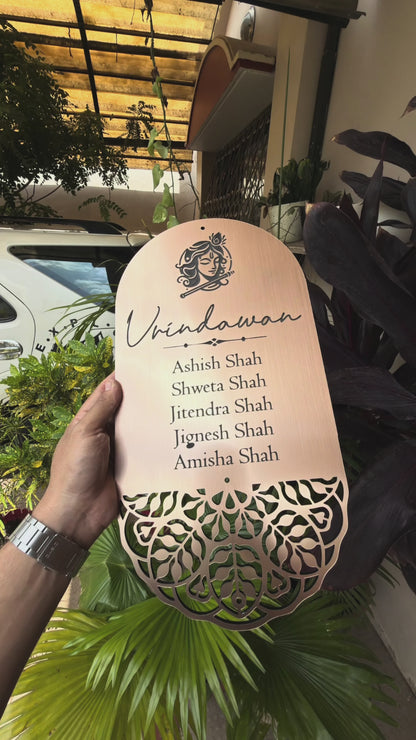 Vrindawan
Ashish Shah
Shweta Shah
Jitendra Shah
Jignesh Shah
Amisha Shah